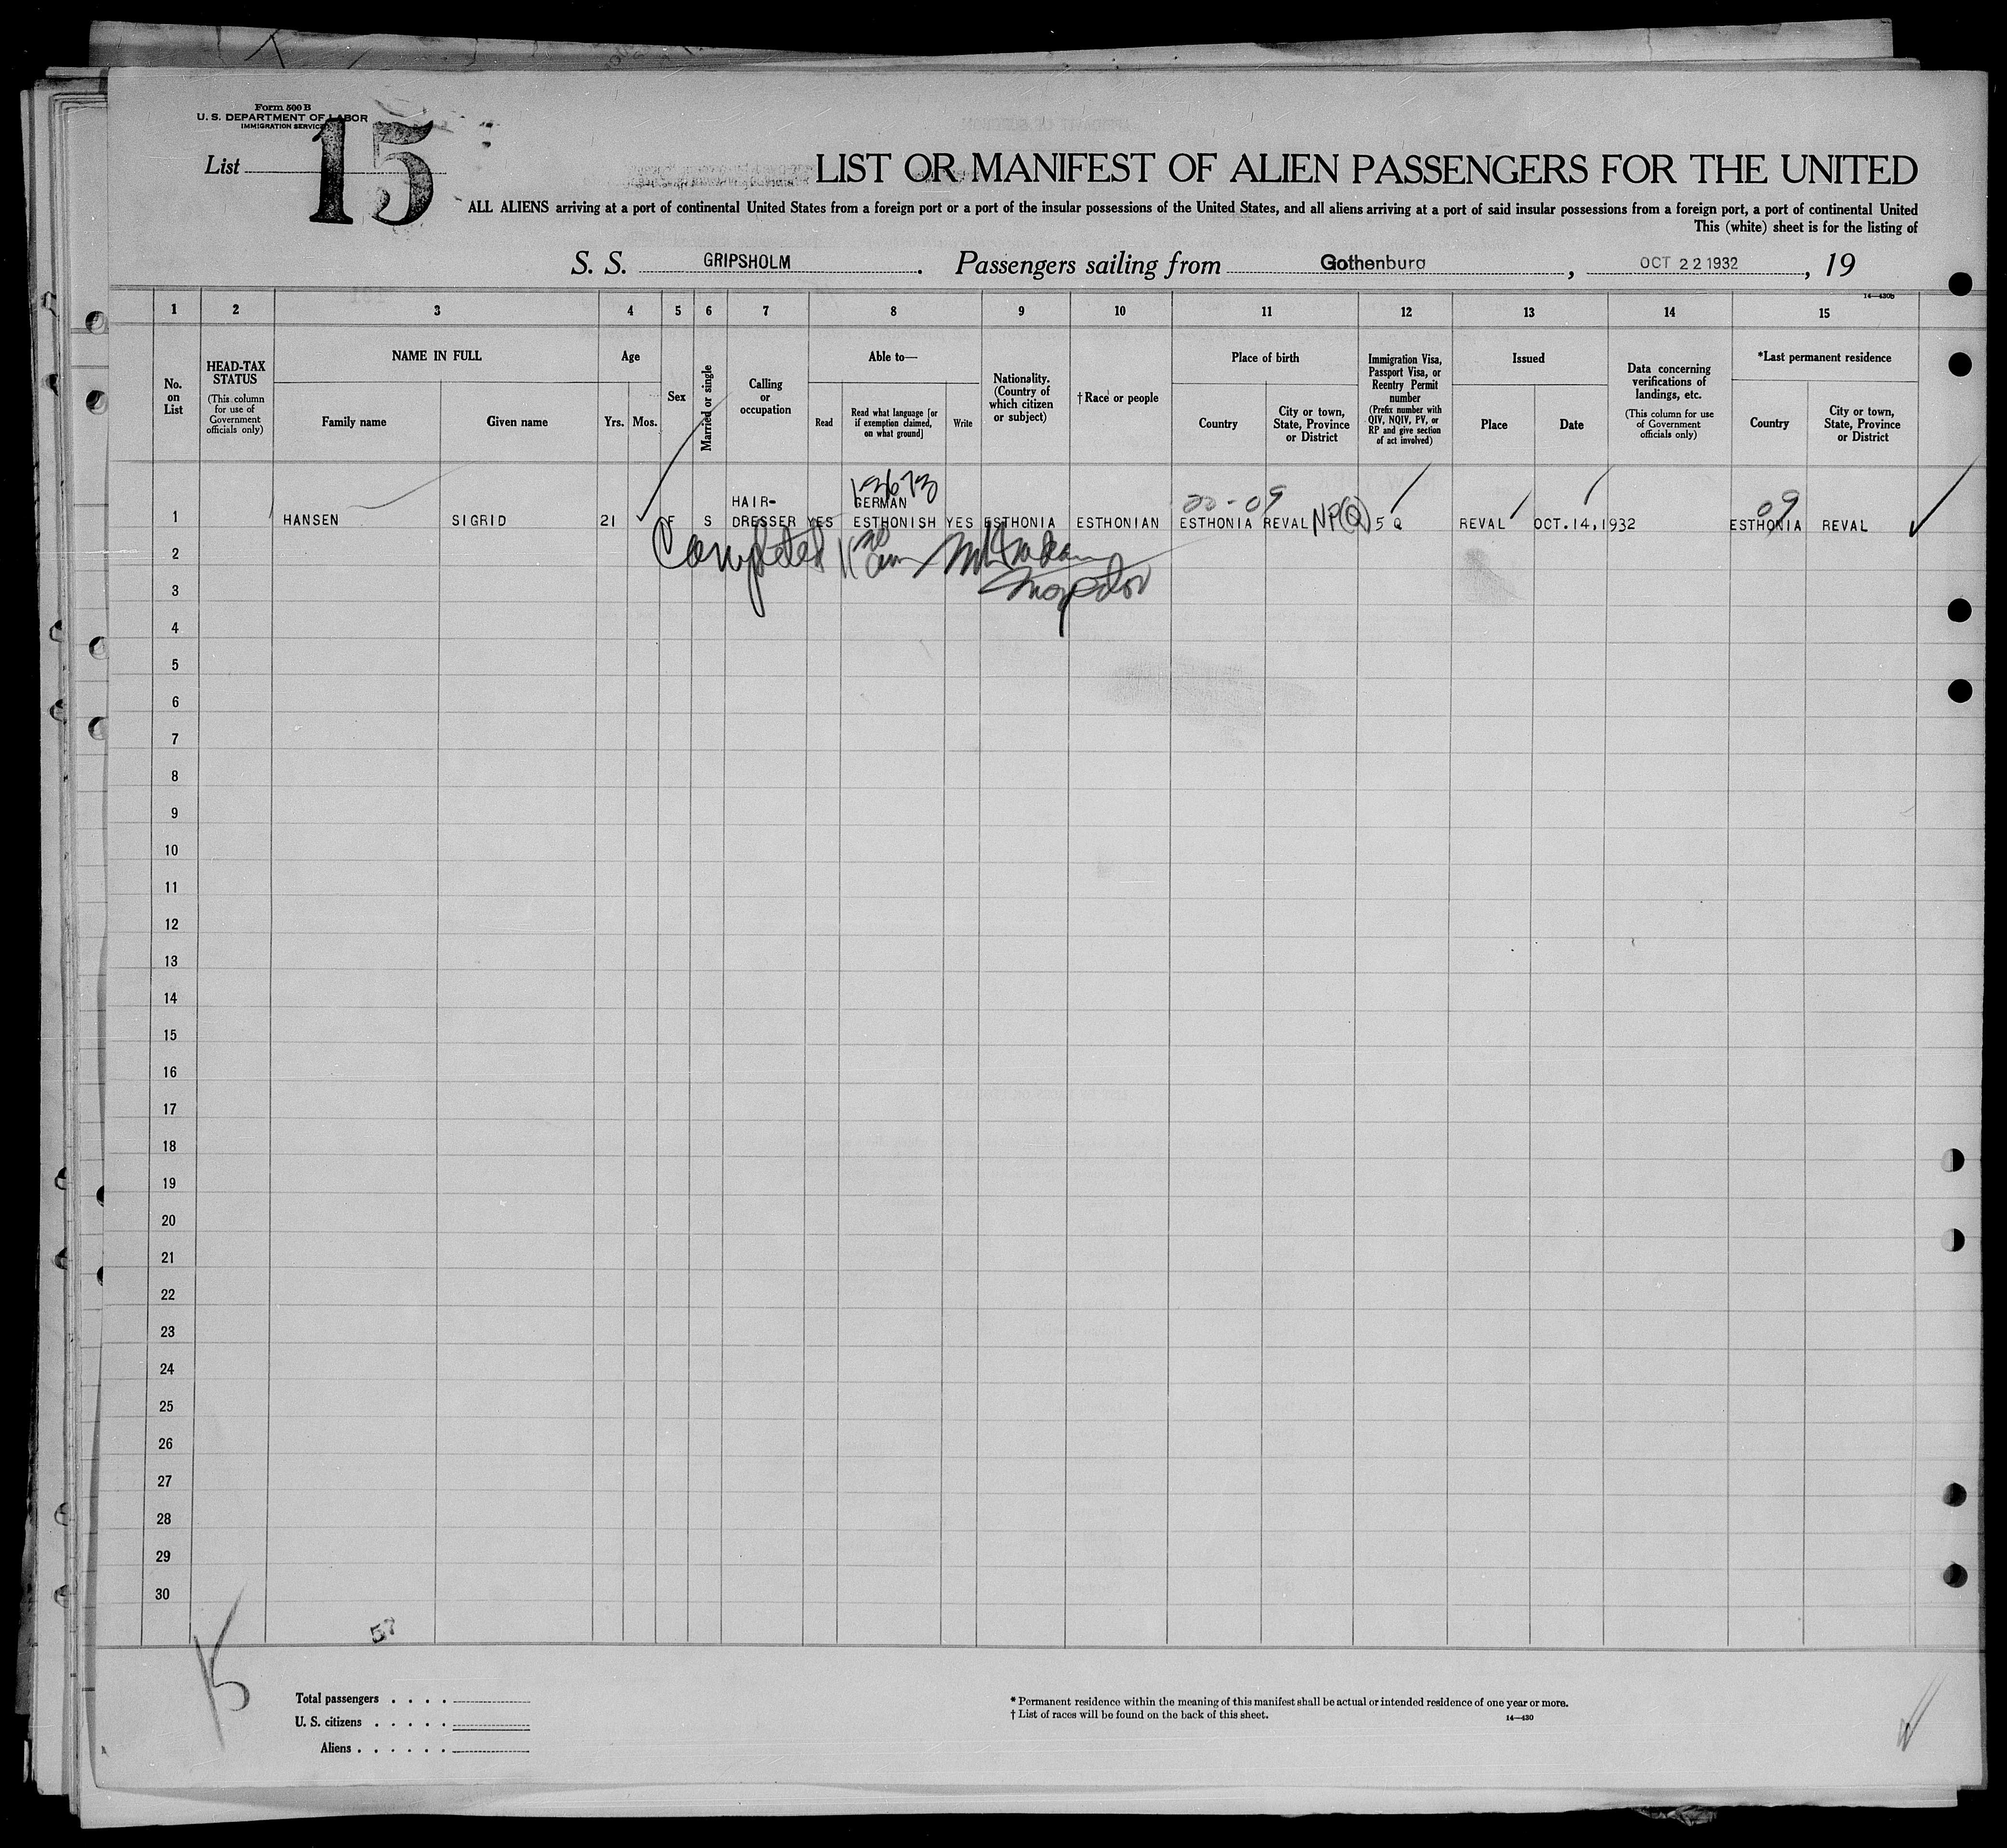 Form 500 B
U. S. DEPARTMENT OF LABOR
IMMIGRATION SERVICE
List 15
LIST OR MANIFEST OF ALIEN PASSENGERS FOR THE UNITED
ALL ALIENS arriving at a port of continental United States from a foreign port or a port of the insular possessions of the United States, and all aliens arriving at a port of said insular possessions from a foreign port, a port of continental United
This (white) sheet is for the listing of
S. S. GRIPSHOLM. Passengers sailing from Gothenburg, OCT 22 1932, 19
14—430B
1 2 3 4 5 6 7 8 9 10 11 12 13 14 15
No. on List
HEAD-TAX STATUS
(This column for use of Government officials only)
NAME IN FULL
Family name
Given name
Age
Yrs.
Mos.
Sex
Married or single
Calling or occupation
Able to—
Read
Read what language [or if exemption claimed, on what ground]
Write
Nationality. (Country of which citizen or subject)
†Race or people
Place of birth
Country
City or town, State, Province or District
Immigration Visa, Passport Visa, or Reentry Permit number
(Prefix number with QIV, NQIV, PV, or RP and give section of act involved)
Issued
Place
Date
Data concerning verifications of landings, etc.
(This column for use of Government officials only)
*Last permanent residence
Country
City or town, State, Province or District
13673
HAIR- GERMAN 20-09 09
1 HANSEN SIGRID 21 F S DRESSER YES ESTHONISH YES ESTHONIA ESTHONIAN ESTHONIA REVAL NP(Q) 5 Q REVAL OCT.14,1932 ESTHONIA REVAL
Completed
Inspector
2
3
4
5
6
7
8
9
10
11
12
13
14
15
16
17
18
19
20
21
22
23
24
25
26
27
28
29
30
57
Total passengers . . . .
U. S. citizens . . . . .
Aliens . . . . . .
* Permanent residence within the meaning of this manifest shall be actual or intended residence of one year or more.
† List of races will be found on the back of this sheet.
14—430